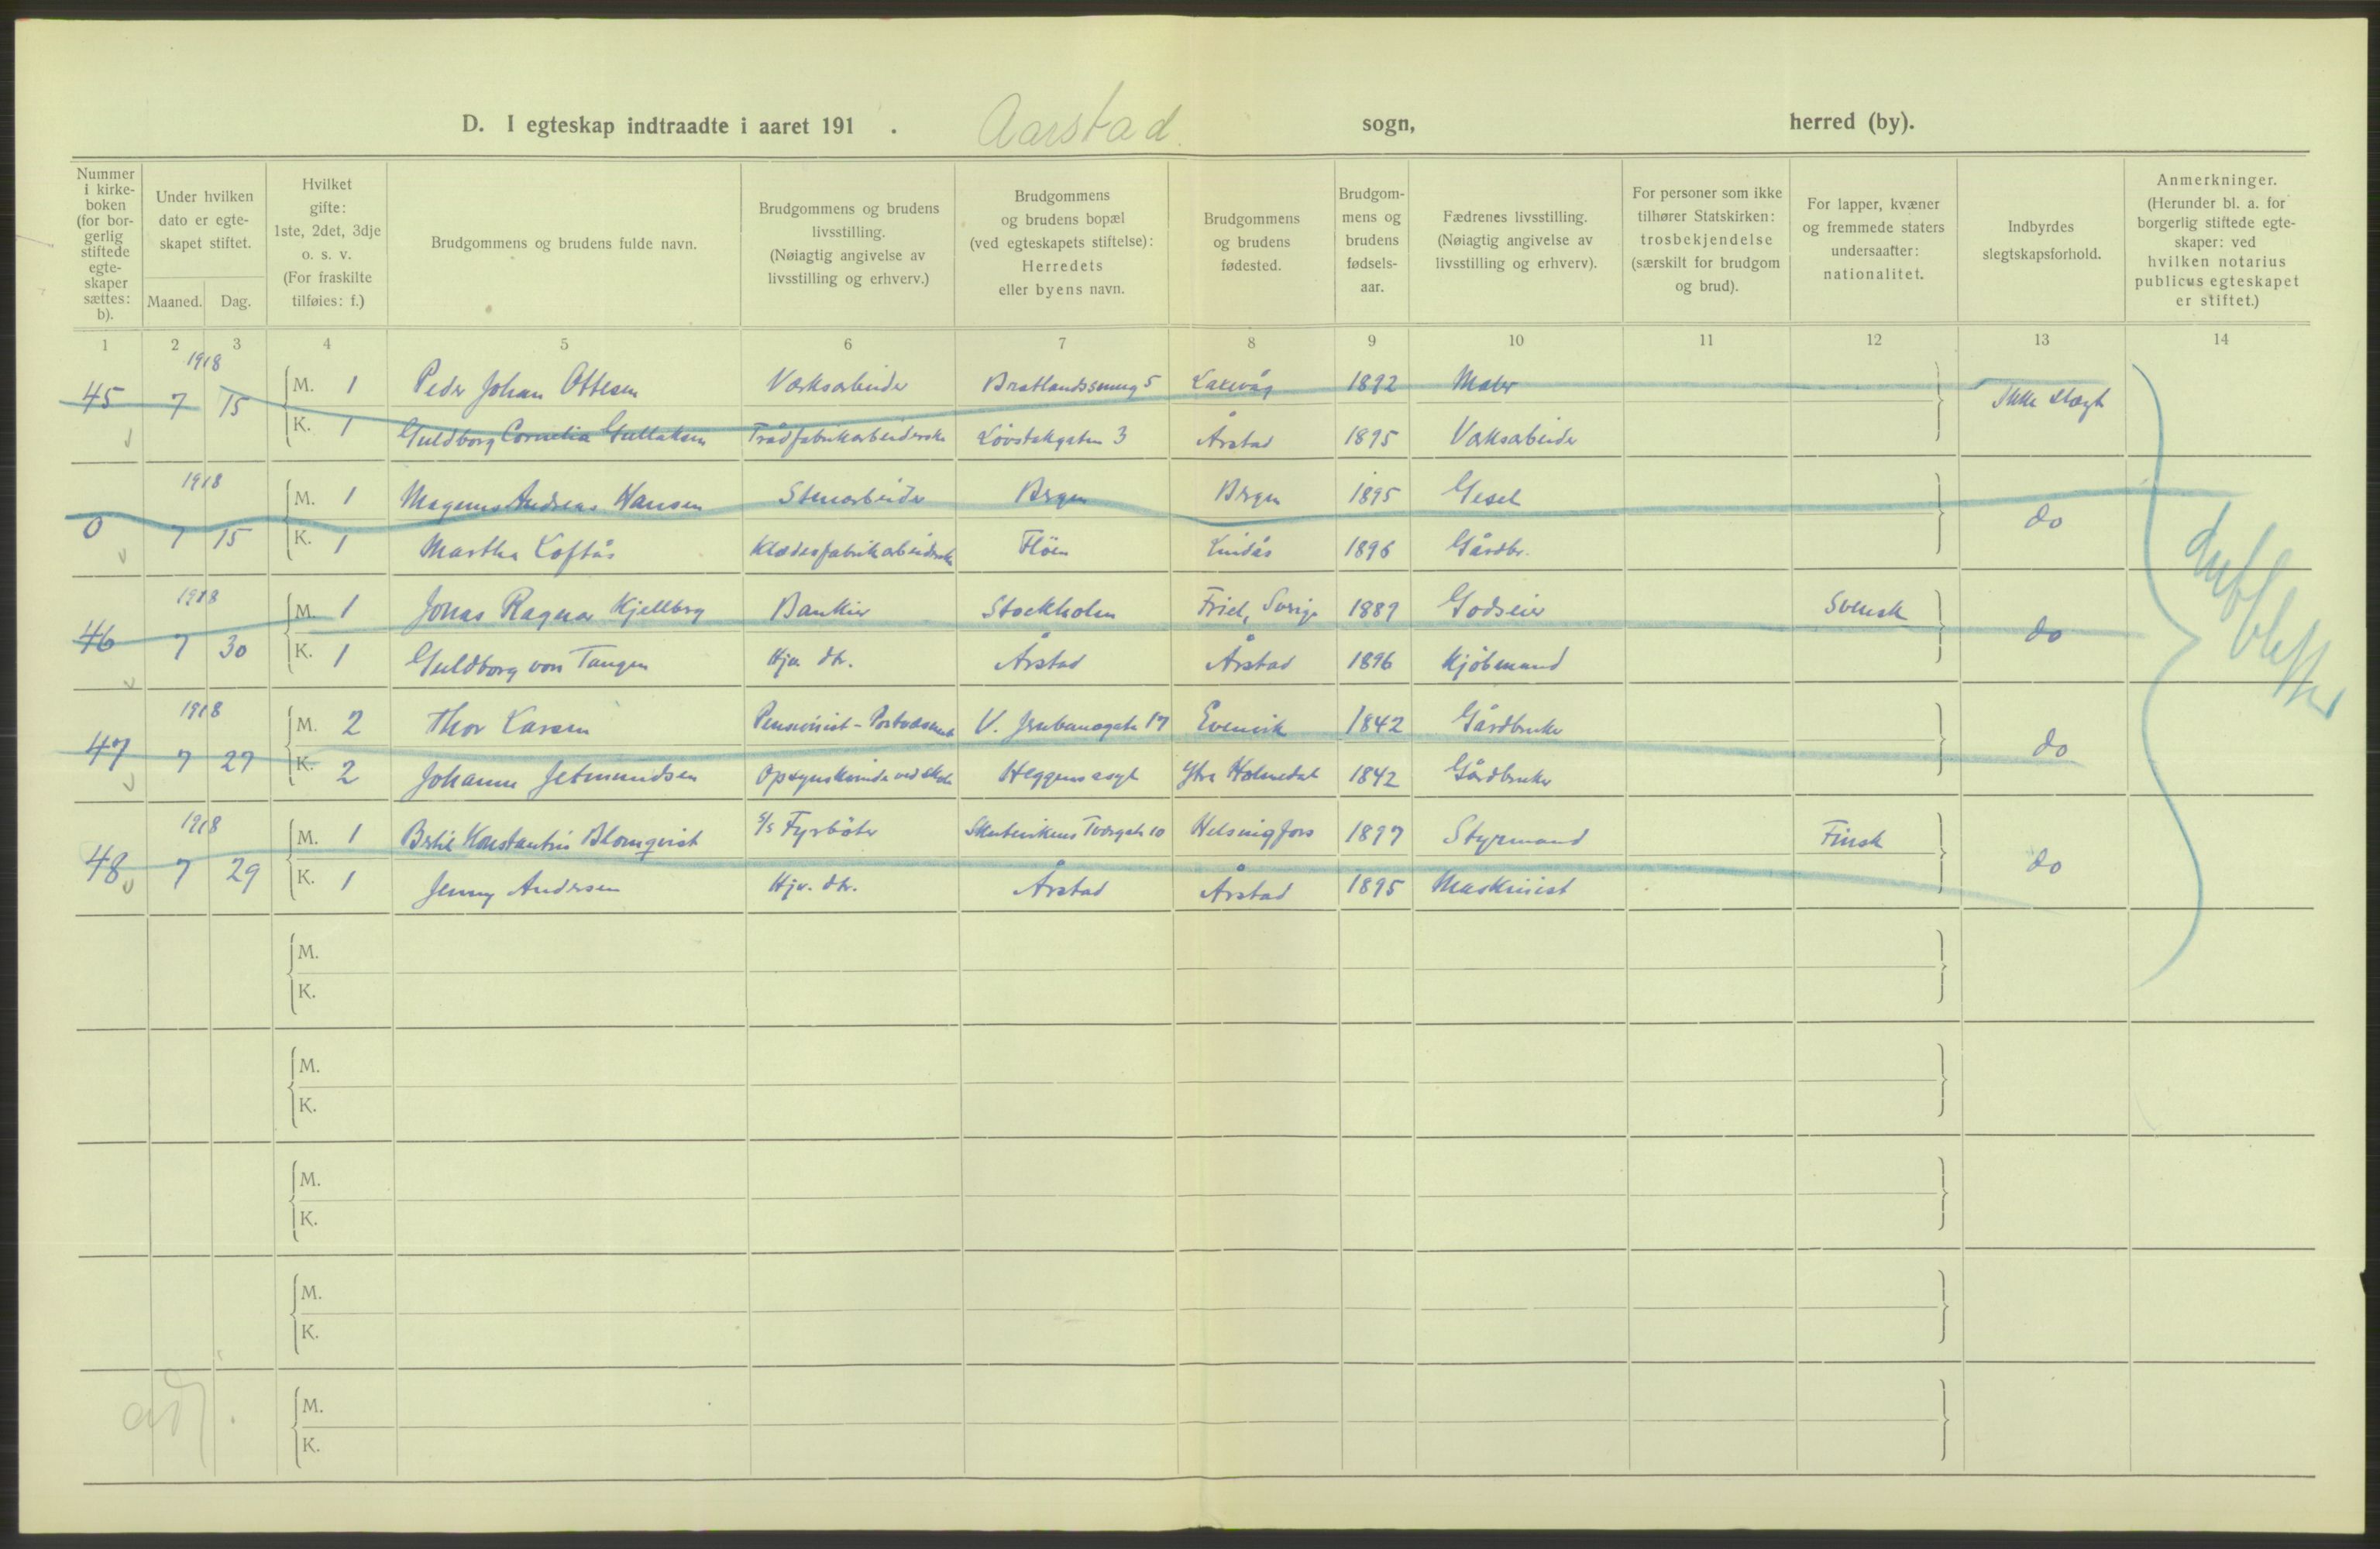 D. I egteskap indtraadte i aaret 191 . Aarstad sogn, herred (by).
Nummer i kirkeboken (for borgerlig stiftede egteskaper sættes: b).
Under hvilken dato er egteskapet stiftet.
Maaned. Dag.
Hvilket gifte: 1ste, 2det, 3dje o. s. v. (For fraskilte tilføies: f.)
Brudgommens og brudens fulde navn.
Brudgommens og brudens livsstilling. (Nøiagtig angivelse av livsstilling og erhverv.)
Brudgommens og brudens bopæl (ved egteskapets stiftelse): Herredets eller byens navn.
Brudgommens og brudens fødested.
Brudgommens og brudens fødselsaar.
Fædrenes livsstilling. (Nøiagtig angivelse av livsstilling og erhverv).
For personer som ikke tilhører Statskirken: trosbekjendelse (særskilt for brudgom og brud).
For lapper, kvæner og fremmede staters undersaatter: nationalitet.
Indbyrdes slegtskapsforhold.
Anmerkninger. (Herunder bl. a. for borgerlig stiftede egteskaper: ved hvilken notarius publicus egteskapet er stiftet.)
1 2 3 4 5 6 7 8 9 10 11 12 13 14
1918
45 7 15 M. 1 Peder Johan Ottesen Værksarbeider Bratlandssmug 5 Laxevåg 1892 Maler Ikke slægt
K. 1 Guldborg Cornelia Gullaksen Trådfabrikarbeiderske Løvstakgaten 3 Årstad 1895 Værksarbeider
1918
0 7 15 M. 1 Magnus Andreas Hansen Stenarbeider Bergen Bergen 1895 Gesel do
K. 1 Martha Loftås Klædesfabrikarbeiderske Fløen Lindås 1896 Gårdbr.
1918
46 7 30 M. 1 Jonas Ragnar Kjellberg Bankier Stockholm Friel, Sverige 1889 Godseier Svensk do
K. 1 Guldborg von Tangen Hjv. dtr. Årstad Årstad 1896 Kjøbmand
1918
47 7 27 M. 2 Thor Larsen Pensionist - V. Jernbanegate 17 Evenvik 1842 Gårdbruker do
K. 2 Johanne Jetmundsen Opsynskvinde ved skole Heggens asyl Ytre Holmedal 1842 Gårdbruker
1918
48 7 29 M. 1 Bertil Konstantin Blomqvist S/S Fyrbøter Skutevikens Tværgate 10 Helsingfors 1897 Styrmand Finsk do
K. 1 Jenny Andersen Hjv. dtr. Årstad Årstad 1895 Maskinist
M.
K.
M.
K.
M.
K.
M.
K.
M.
K.